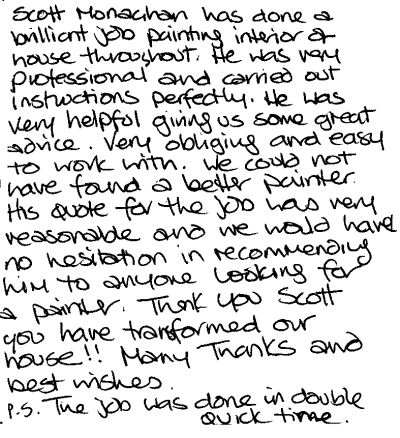 Scott Monachan has done a
brilliant job painting interior of
house throughout. He was very
professional and carried out
instructions perfectly. He was
very helpful giving us some great
advice. Very obliging and easy
to work with. We could not
have found a better painter.
His quote for the job was very
reasonable and we would have
no hesitation in recommending
him to anyone looking for
a painter. Thank you Scott
you have transformed our
house!! Many Thanks and
best wishes.
P.S. The job was done in double
quick time.